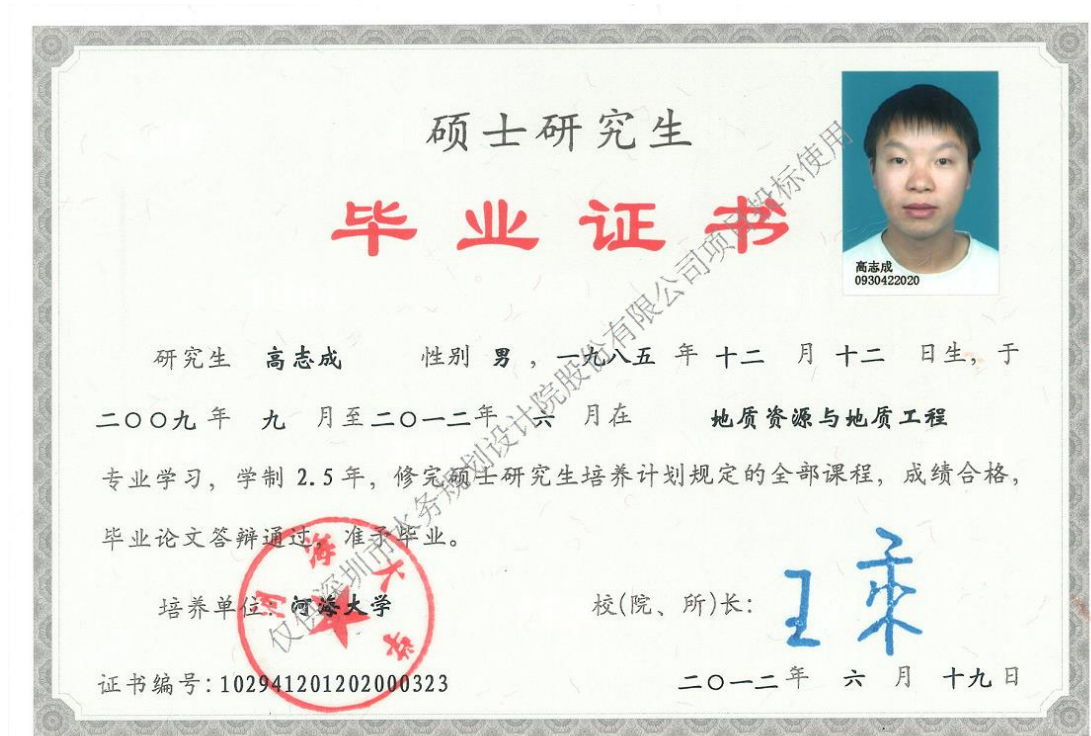 硕士研究生
毕业证书
高志成
0930422020
研究生 高志成 性别 男 , 一九八五 年 十二 月 十二 日生, 于
二〇〇九 年 九 月至 二〇一二 年 六 月在 地质资源与地质工程
专业学习, 学制 2.5 年, 修完硕士研究生培养计划规定的全部课程, 成绩合格,
毕业论文答辩通过, 准予毕业。
培养单位: 河海大学
校(院、所)长:
王乘
证书编号: 102941201202000323
二〇一二 年 六 月 十九 日
河海大学
仅供深圳市水务规划设计院股份有限公司项目投标使用